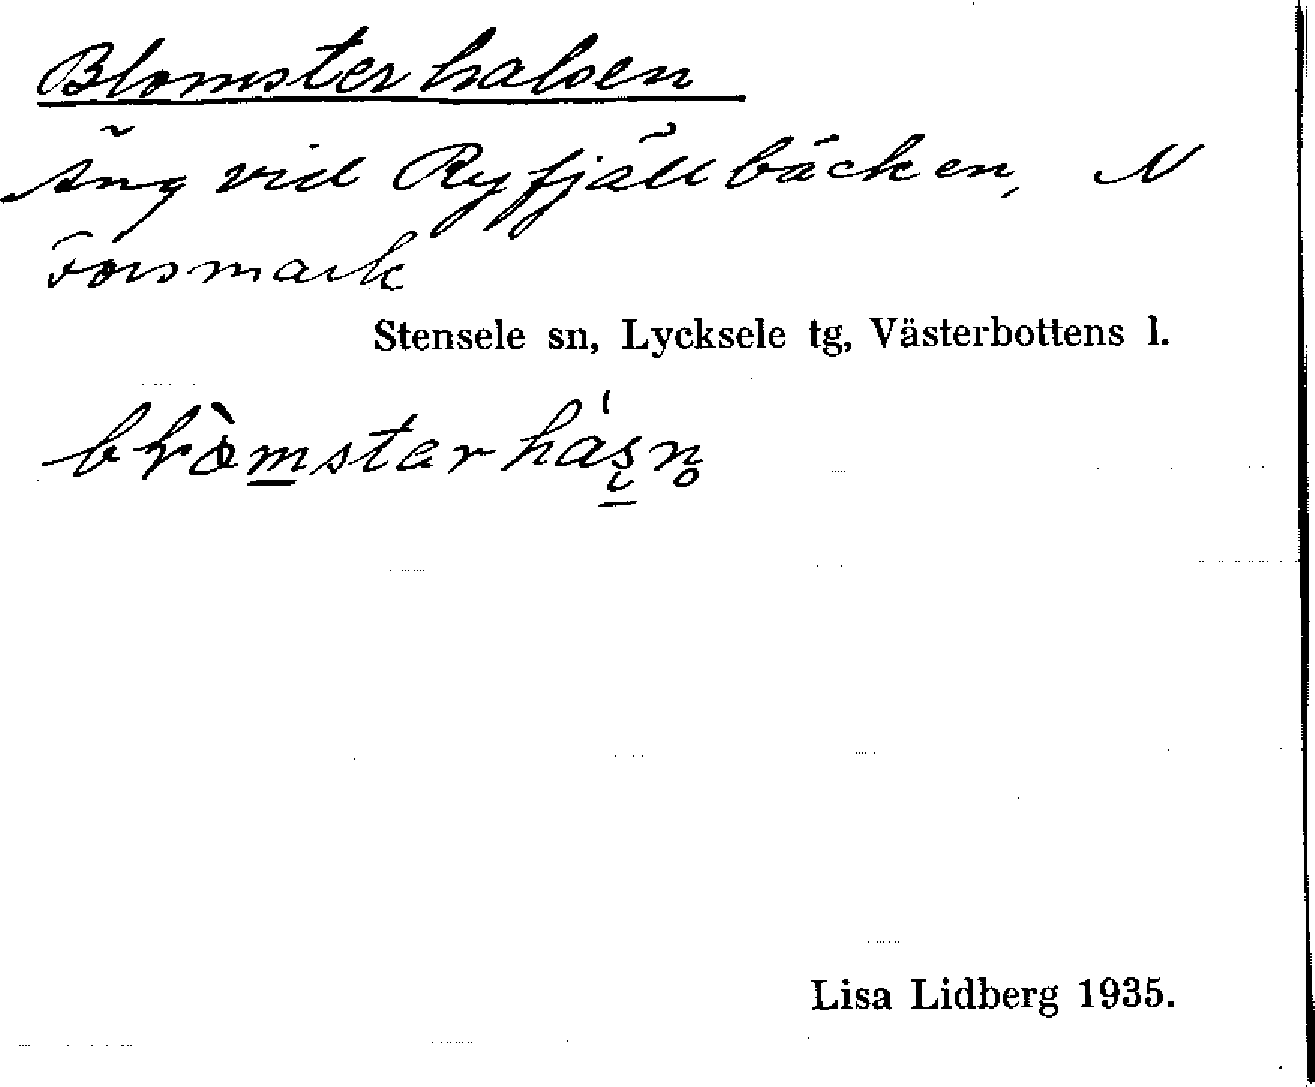 Blomsterhalsen
Äng vid Ryfjällbäcken, N
Forsmark
Stensele sn, Lycksele tg, Västerbottens l.
Lisa Lidberg 1935.